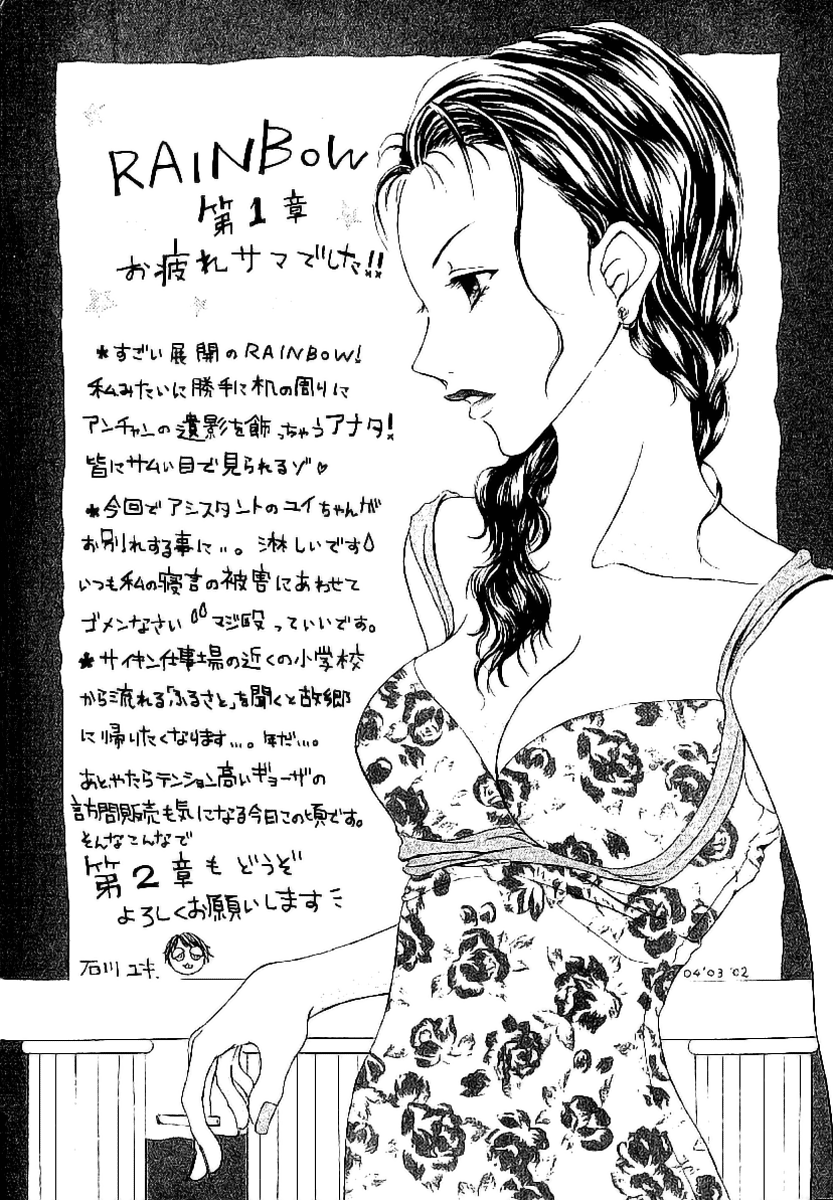 RAINBOW
第1章
お疲れサマでした!!
*すごい展開のRAINBOW!
私みたいに勝手に机の周りに
アンチャンの遺影を飾っちゃうアナタ!
皆にサムい目で見られるゾ♡
*今回でアシスタントのユイちゃんが
お別れする事に…。淋しいです
いつも私の寝言の被害にあわせて
ゴメンなさい マジ殴っていいです。
*サイキン仕事場の近くの小学校
から流れる「ふるさと」を聞くと故郷
に帰りたくなります…。年だ…。
あとやたらテンション高いギョーザの
訪問販売も気になる今日この頃です。
そんなこんなで
第2章もどうぞ
よろしくお願いします
石川ユキ.
04'03'02